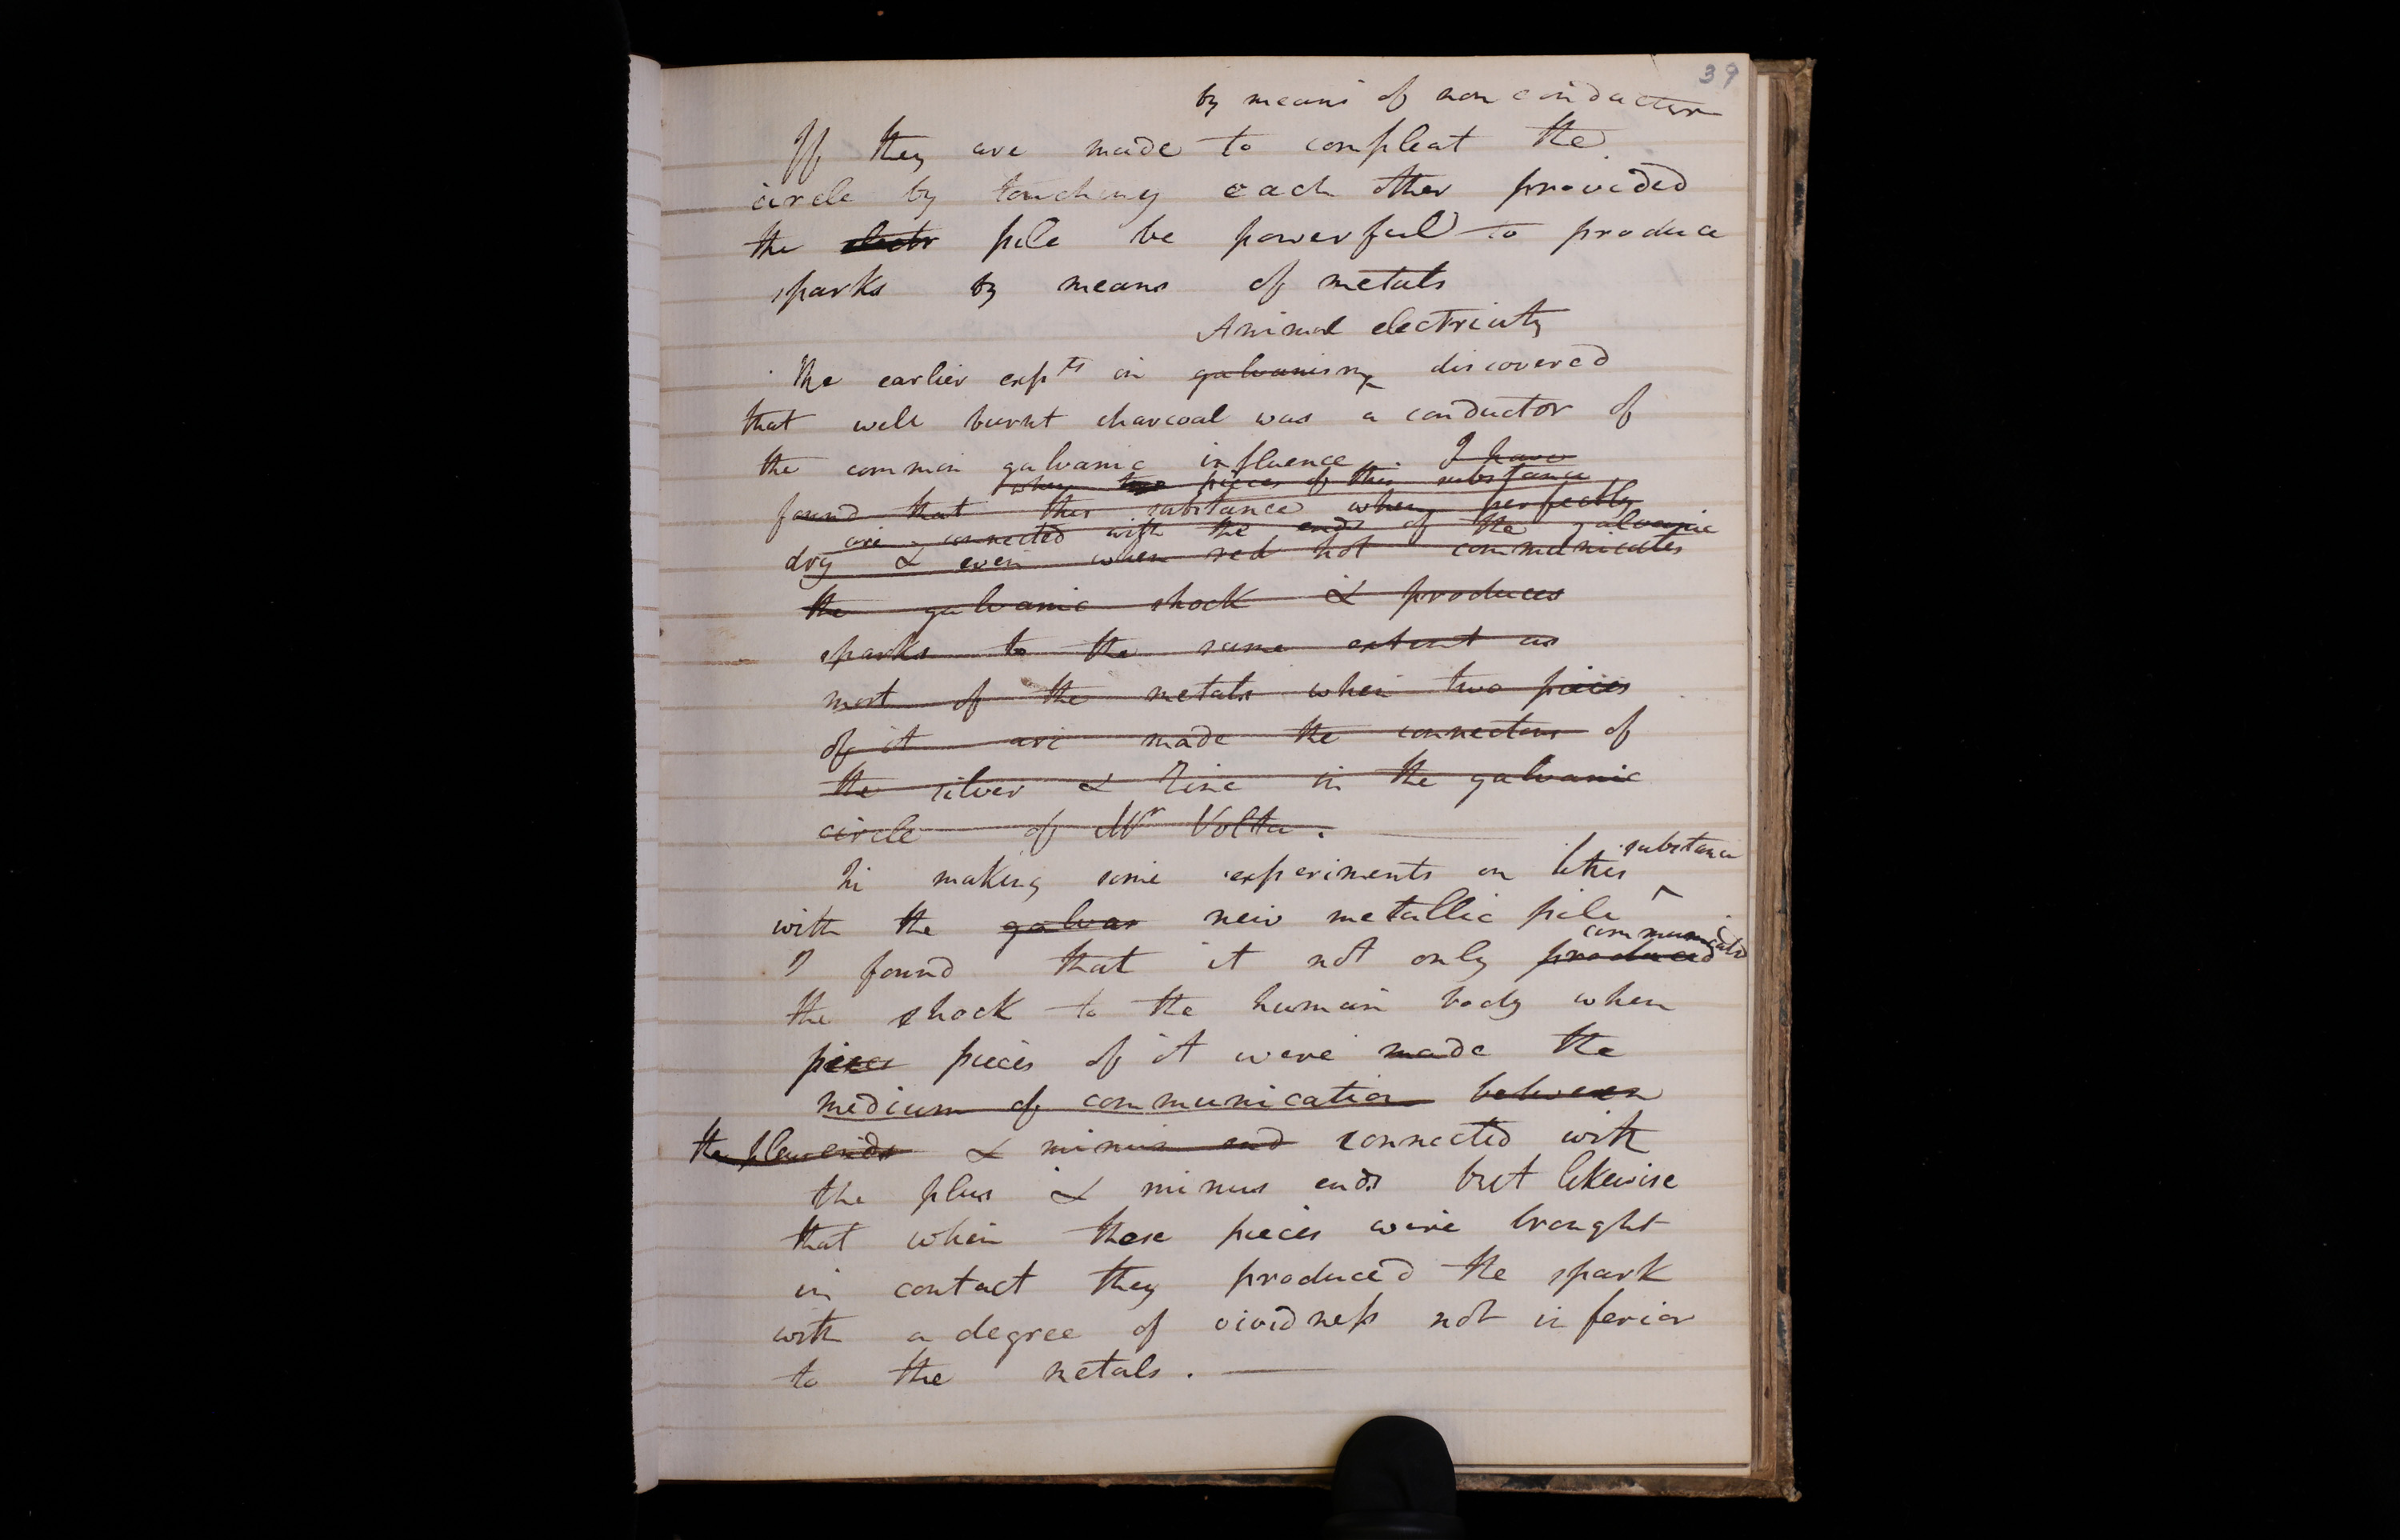 39
by means of non conductor
If they are made to compleat the
circle by touching each other provided
the electr pile be powerful to produce
sparks by means of metals
Animal electricity
The earlier expts in galvanism discovered
that well burnt charcoal was a conductor of
the common galvanic influence. I have
when two pieces of this substance
found that this substance when perfectly
are connected with the ends of the galvanic
dry & even when red hot communicates
the galvanic shock & produces
sparks to the same extent as
most of the metals when two pieces
of it are made the connectors of
the silver & zinc in the galvanic
circle of Mr Volta.
substance
In making some experiments on this
with the galvan new metallic pile
communicated
I found that it not only produced
the shock to the human body when
pieces pieces of it were made the
medium of communication between
the plus ends & minus end connected with
the plus & minus ends but likewise
that when these pieces were brought
in contact they produced the spark
with a degree of vividness not inferior
to the metals.